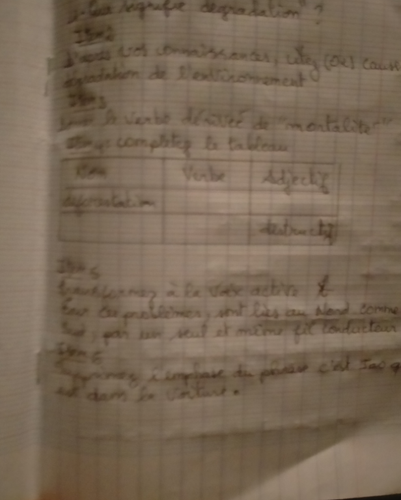 signifie dégradation" ?
Item 2
D'après vos connaissances, citez (02) causes
dégradation de l'environnement
Item 3
le verbe dérivée de "mortalité"
Item 4 complétez le tableau
Nom Verbe Adjectif
déforestation
destructif
Item 5
transformez à la voix active
Tous ces problèmes, sont liés au Nord comme
Sud, par un seul et même fil conducteur
Item 6
Supprimez l'emphase du phrase c'est
est dans la voiture.